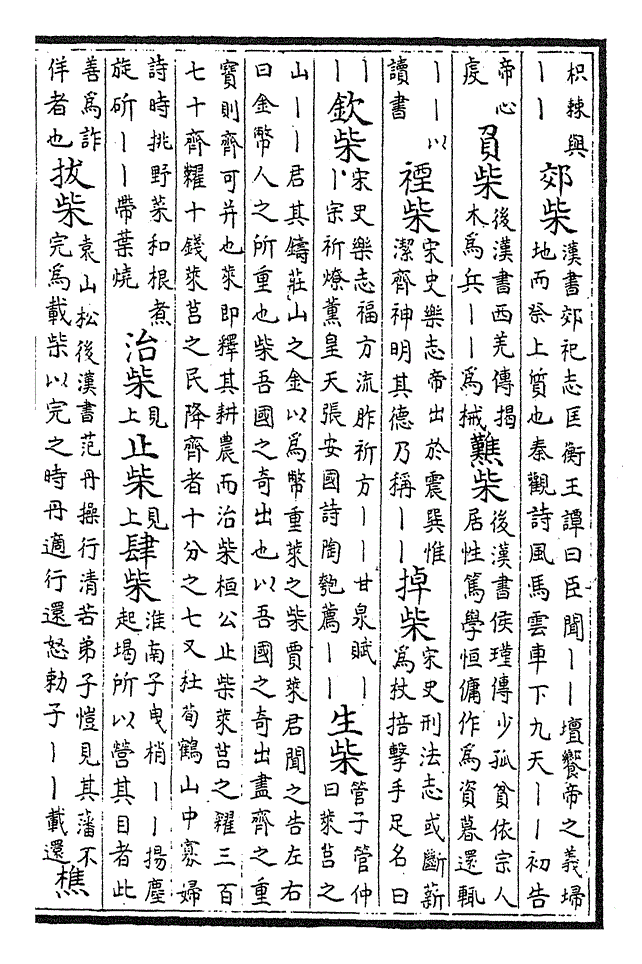 枳棘與
丨丨
郊柴
漢書郊祀志匡衡王譚曰臣聞丨丨壇饗帝之義埽
地而祭上質也秦觀詩風馬雲車下九天丨丨初告
帝心
虔
負柴
後漢書西羌傳揭
木為兵丨丨為械
㸐柴
後漢書侯瑾傳少孤貧依宗人
居性篤學恒傭作為資暮還輒
丨丨以
讀書
禋柴
宋史樂志帝出於震巽惟
潔齊神明其德乃稱丨丨
掉柴
宋史刑法志或斷薪
為杖掊擊手足名曰
丨丨
丨
欽柴
宋史樂志福方流胙祈方丨丨甘泉賦丨
丨宗祈燎薰皇天張安國詩陶匏薦丨丨
生柴
管子管仲
曰萊莒之
山丨丨君其鑄莊山之金以為幣重萊之柴賈萊君聞之告左右
曰金幣人之所重也柴吾國之奇出也以吾國之奇出盡齊之重
寶則齊可并也萊即釋其耕農而治柴桓公止柴萊莒之糴三百
七十齊糶十錢萊莒之民降齊者十分之七又杜荀鶴山中寡婦
詩時挑野菜和根煮
旋斫丨丨帶葉燒
治柴
見
上
止柴
見
上
肆柴
淮南子曳梢丨丨揚塵
起堨所以營其目者此
善為詐
佯者也
拔柴
袁山松後漢書范丹操行清苦弟子愷見其藩不
完為載柴以完之時丹適行還怒勑子丨丨載還
樵